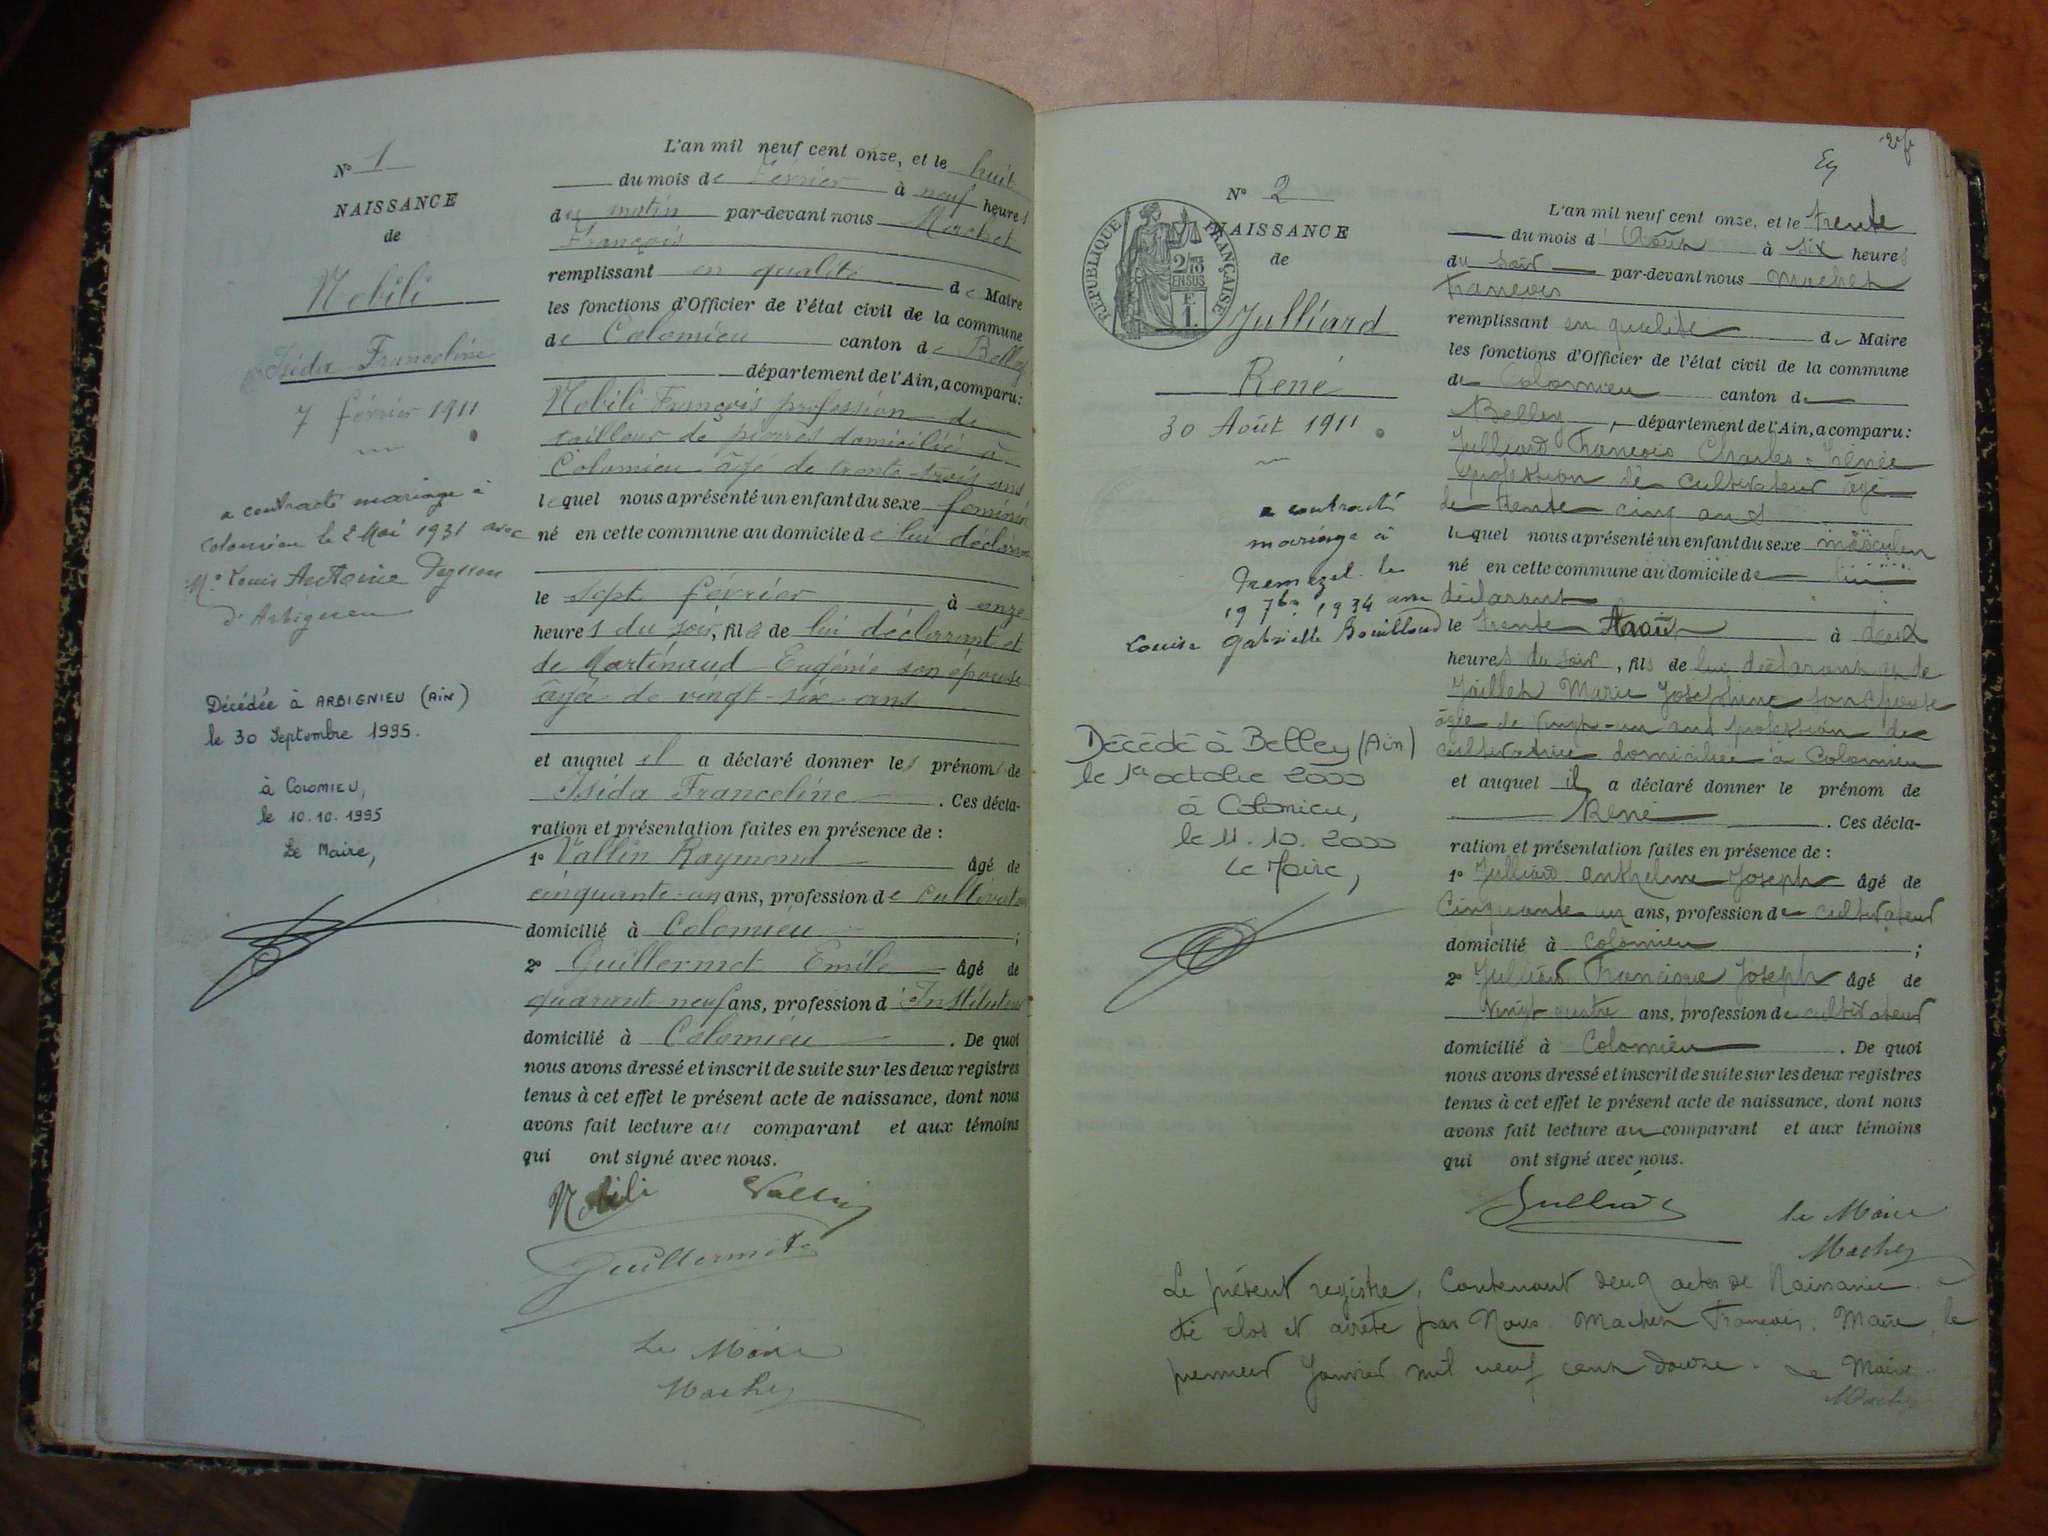 N° 1
NAISSANCE
de
Nobili
Isida Franceline
7 février 1911
a contracté mariage à
Colomieu le 2 Mai 1931 avec
Mr Louis Antoine Peysson
d'Arbignieu
Décédée à ARBIGNIEU (Ain)
le 30 Septembre 1995.
à COLOMIEU,
le 10.10.1995
Le Maire,
L'an mil neuf cent onze, et le huit
du mois de Février à neuf heures
du matin par-devant nous Machet
François
remplissant en qualité de Maire
les fonctions d'Officier de l'état civil de la commune
de Colomieu canton de Belley
département de l'Ain, a comparu:
Nobili François profession de
tailleur de pierres domicilié à
Colomieu âgé de trente-trois ans
lequel nous a présenté un enfant du sexe féminin
né en cette commune au domicile de lui déclarant
le sept février à onze
heures du soir, fille de lui déclarant et
de Martinaud Eugénie son épouse
âgée de vingt-six ans
et auquel il a déclaré donner les prénoms de
Isida Franceline. Ces décla-
ration et présentation faites en présence de :
1° Vallin Raymond âgé de
cinquante-un ans, profession de cultivateur
domicilié à Colomieu ;
2° Guillermet Emile âgé de
quarante-neuf ans, profession d'Instituteur
domicilié à Colomieu. De quoi
nous avons dressé et inscrit de suite sur les deux registres
tenus à cet effet le présent acte de naissance, dont nous
avons fait lecture au comparant et aux témoins
qui ont signé avec nous.
Nobili Vallin
Guillermet
Le Maire
Machet
N° 2
NAISSANCE
de
RÉPUBLIQUE FRANÇAISE
2/10
EN SUS
F.
1.
Julliard
René
30 Août 1911
a contracté
mariage à
le
19 7bre 1934 avec
Louise Gabrielle Bouilloud
Décédé à Belley (Ain)
le 1er octobre 2000
à Colomieu,
le 11.10.2000
Le Maire,
L'an mil neuf cent onze, et le trente
du mois d'Août à six heures
du soir par-devant nous Machet
François
remplissant en qualité de Maire
les fonctions d'Officier de l'état civil de la commune
de Colomieu canton de
Belley, département de l'Ain, a comparu:
Julliard François Charles Irénée
profession de cultivateur âgé
de trente cinq ans
lequel nous a présenté un enfant du sexe masculin
né en cette commune au domicile de lui
déclarant
le trente Août à deux
heures du soir, fils de lui déclarant et de
Jaillet Marie Joséphine son épouse
âgée de vingt-un ans profession de
cultivatrice domiciliée à Colomieu
et auquel il a déclaré donner le prénom de
René. Ces décla-
ration et présentation faites en présence de :
1° Julliard Anthelme Joseph âgé de
Cinquante un ans, profession de cultivateur
domicilié à Colomieu ;
2° Julliard Francisque Joseph âgé de
Vingt quatre ans, profession de cultivateur
domicilié à Colomieu. De quoi
nous avons dressé et inscrit de suite sur les deux registres
tenus à cet effet le présent acte de naissance, dont nous
avons fait lecture au comparant et aux témoins
qui ont signé avec nous.
Julliard
Le Maire
Machet
Le présent registre, contenant deux actes de Naissance a
été clos et arrêté par Nous Machet François, Maire, le
premier Janvier mil neuf cent douze. Le Maire
Machet